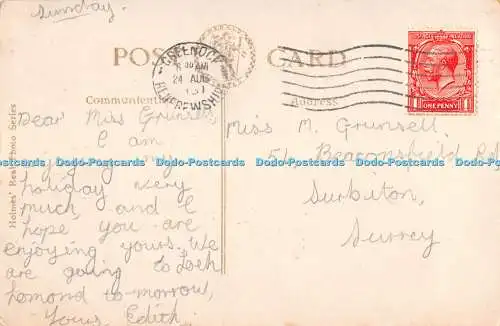 Sunday.
POST CARD
GREENOCK
8 30 AM
24 AUG
RENFREWSHIRE
POSTAGE REVENUE
ONE PENNY
Communication
Address
Holmes' Real Photo Series
Dear Miss Grunsell
I am
enjoying my
holiday very
much, and I
hope you are
enjoying yours. We
are going to Loch
Lomond to-morrow,
Yours Edith.
Miss M. Grunsell.
51, Beaconsfield Rd
Surbiton,
Surrey
Dodo-Postcards Dodo-Postcards Dodo-Postcards Dodo-Postcards Dodo-Postcards Dodo-Postcards